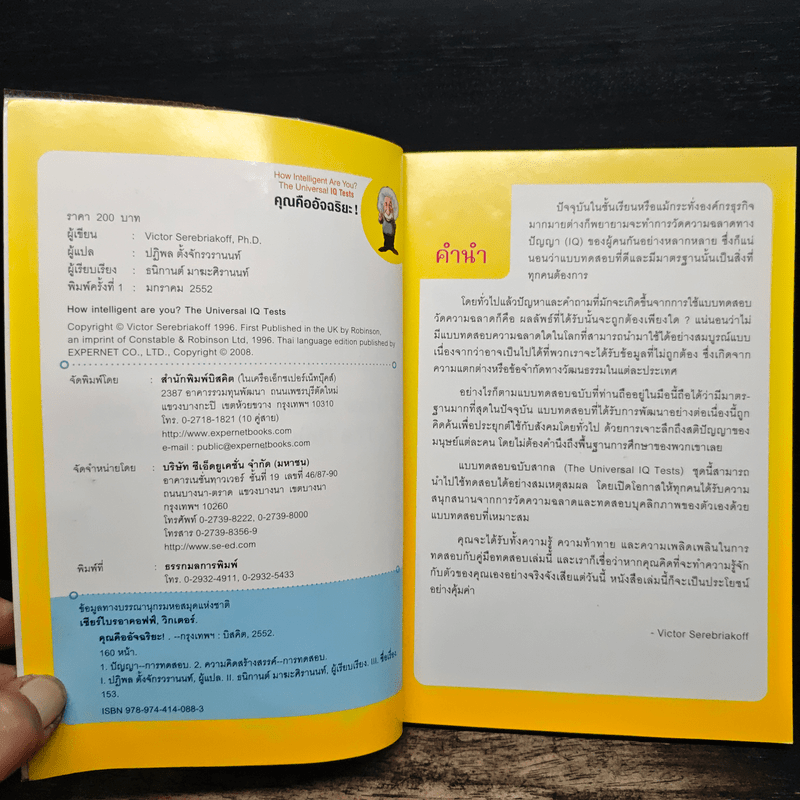 How Intelligent Are You?
The Universal IQ Tests
คุณคืออัจฉริยะ!
ราคา 200 บาท
ผู้เขียน : Victor Serebriakoff, Ph.D.
ผู้แปล : ปฏิพล ตั้งจักรวรานนท์
ผู้เรียบเรียง : ธนิกานต์ มาฆะศิรานนท์
พิมพ์ครั้งที่ 1 : มกราคม 2552
How intelligent are you? The Universal IQ Tests
Copyright © Victor Serebriakoff 1996. First Published in the UK by Robinson,
an imprint of Constable & Robinson Ltd, 1996. Thai language edition published by
EXPERNET CO., LTD., Copyright © 2008.
จัดพิมพ์โดย : สำนักพิมพ์บิสคิต (ในเครือเอ็กซเปอร์เน็ทบุ๊คส์)
2387 อาคารรวมทุนพัฒนา ถนนเพชรบุรีตัดใหม่
แขวงบางกะปิ เขตห้วยขวาง กรุงเทพฯ 10310
โทร. 0-2718-1821 (10 คู่สาย)
http://www.expernetbooks.com
e-mail : public@expernetbooks.com
จัดจำหน่ายโดย : บริษัท ซีเอ็ดยูเคชั่น จำกัด (มหาชน)
อาคารเนชั่นทาวเวอร์ ชั้นที่ 19 เลขที่ 46/87-90
ถนนบางนา-ตราด แขวงบางนา เขตบางนา
กรุงเทพฯ 10260
โทรศัพท์ 0-2739-8222, 0-2739-8000
โทรสาร 0-2739-8356-9
http://www.se-ed.com
พิมพ์ที่ : ธรรกมลการพิมพ์
โทร. 0-2932-4911, 0-2932-5433
ข้อมูลทางบรรณานุกรมหอสมุดแห่งชาติ
เซียร์ไบรอาคอฟฟ์, วิกเตอร์.
คุณคืออัจฉริยะ! . --กรุงเทพฯ : บิสคิต, 2552.
160 หน้า.
1. ปัญญา--การทดสอบ. 2. ความคิดสร้างสรรค์--การทดสอบ.
I. ปฏิพล ตั้งจักรวรานนท์, ผู้แปล. II. ธนิกานต์ มาฆะศิรานนท์, ผู้เรียบเรียง. III. ชื่อเรื่อง.
153.
ISBN 978-974-414-088-3
คำนำ
ปัจจุบันในชั้นเรียนหรือแม้กระทั่งองค์กรธุรกิจ
มากมายต่างก็พยายามจะทำการวัดความฉลาดทาง
ปัญญา (IQ) ของผู้คนกันอย่างหลากหลาย ซึ่งก็แน่
นอนว่าแบบทดสอบที่ดีและมีมาตรฐานนั้นเป็นสิ่งที่
ทุกคนต้องการ
โดยทั่วไปแล้วปัญหาและคำถามที่มักจะเกิดขึ้นจากการใช้แบบทดสอบ
วัดความฉลาดก็คือ ผลลัพธ์ที่ได้รับนั้นจะถูกต้องเพียงใด ? แน่นอนว่าไม่
มีแบบทดสอบความฉลาดใดในโลกที่สามารถนำมาใช้ได้อย่างสมบูรณ์แบบ
เนื่องจากว่าอาจเป็นไปได้ที่พวกเราจะได้รับข้อมูลที่ไม่ถูกต้อง ซึ่งเกิดจาก
ความแตกต่างหรือข้อจำกัดทางวัฒนธรรมในแต่ละประเทศ
อย่างไรก็ตามแบบทดสอบฉบับที่ท่านถืออยู่ในมือนี้ถือได้ว่ามีมาตร-
ฐานมากที่สุดในปัจจุบัน แบบทดสอบที่ได้รับการพัฒนาอย่างต่อเนื่องนี้ถูก
คิดค้นเพื่อประยุกต์ใช้กับสังคมโดยทั่วไป ด้วยการเจาะลึกถึงสติปัญญาของ
มนุษย์แต่ละคน โดยไม่ต้องคำนึงถึงพื้นฐานการศึกษาของพวกเขาเลย
แบบทดสอบฉบับสากล (The Universal IQ Tests) ชุดนี้สามารถ
นำไปใช้ทดสอบได้อย่างสมเหตุสมผล โดยเปิดโอกาสให้ทุกคนได้รับความ
สนุกสนานจากการวัดความฉลาดและทดสอบบุคลิกภาพของตัวเองด้วย
แบบทดสอบที่เหมาะสม
คุณจะได้รับทั้งความรู้ ความท้าทาย และความเพลิดเพลินในการ
ทดสอบกับคู่มือทดสอบเล่มนี้ และเราก็เชื่อว่าหากคุณคิดที่จะทำความรู้จัก
กับตัวของคุณเองอย่างจริงจังเสียแต่วันนี้ หนังสือเล่มนี้ก็จะเป็นประโยชน์
อย่างคุ้มค่า
- Victor Serebriakoff